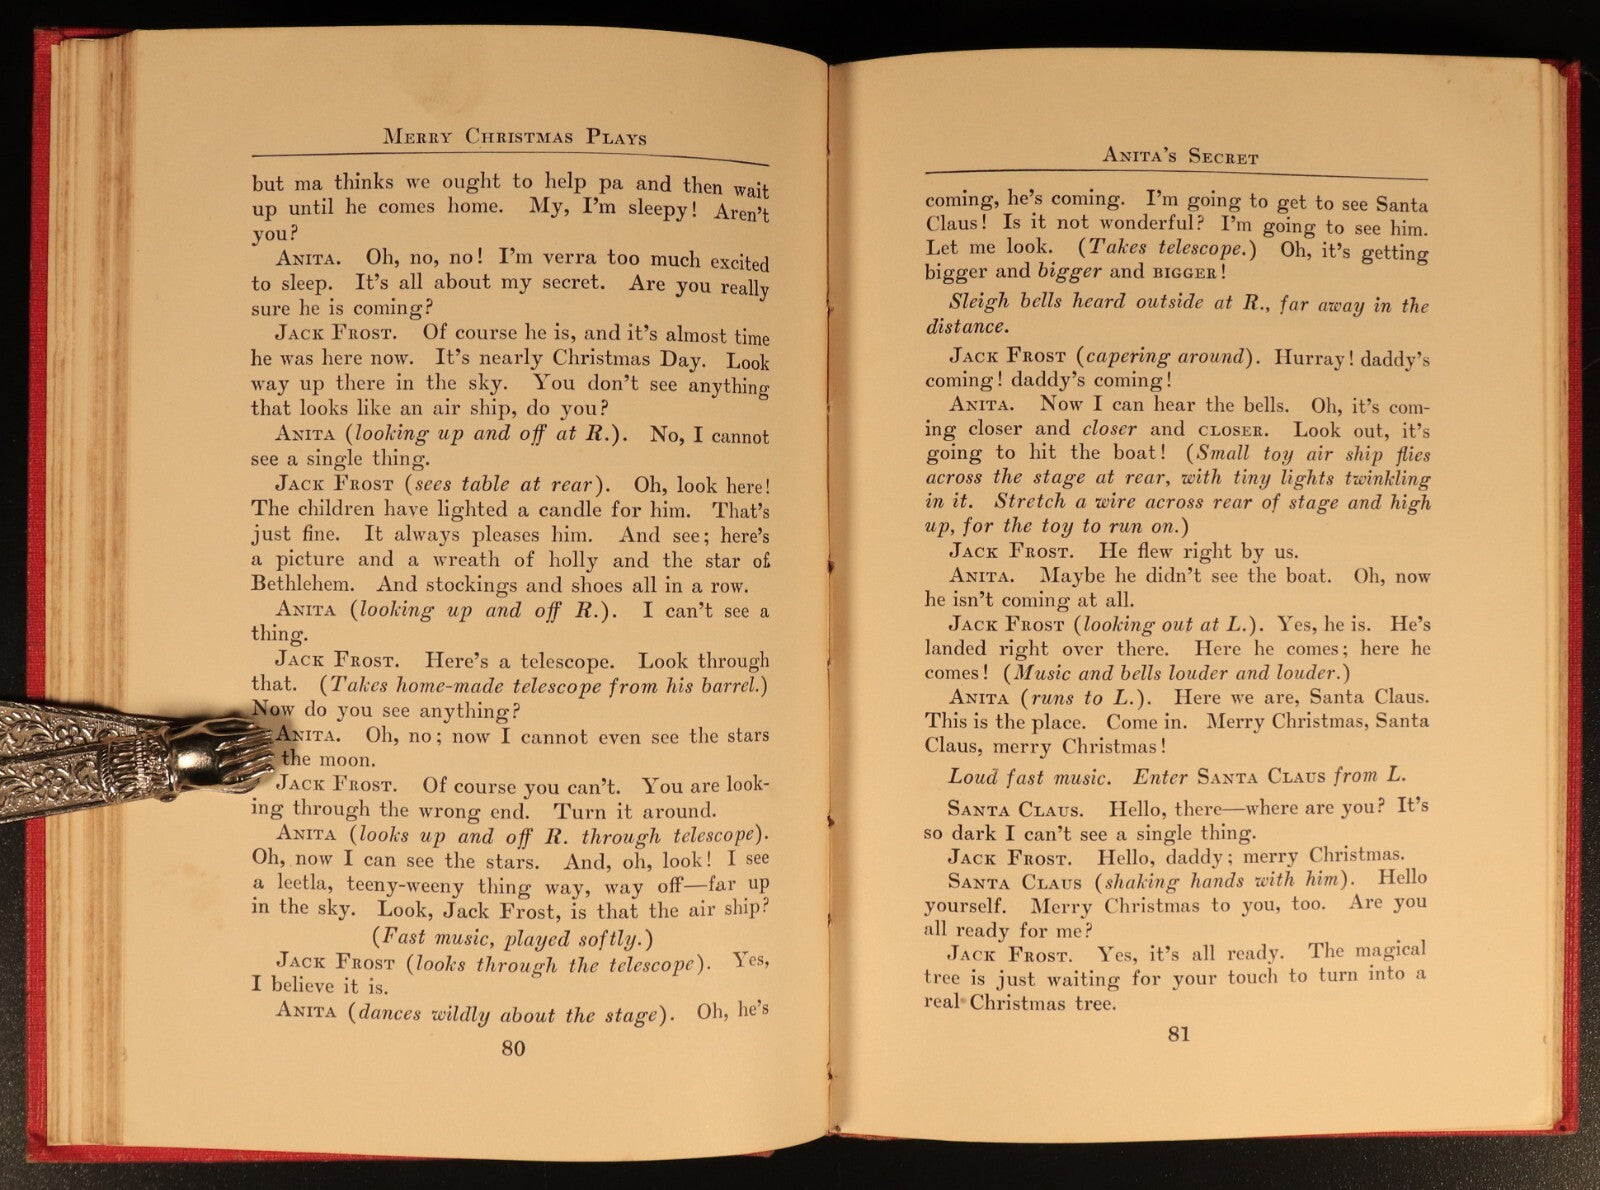 MERRY CHRISTMAS PLAYS
but ma thinks we ought to help pa and then wait
up until he comes home. My, I'm sleepy! Aren't
you?
ANITA. Oh, no, no! I'm verra too much excited
to sleep. It's all about my secret. Are you really
sure he is coming?
JACK FROST. Of course he is, and it's almost time
he was here now. It's nearly Christmas Day. Look
way up there in the sky. You don't see anything
that looks like an air ship, do you?
ANITA (looking up and off at R.). No, I cannot
see a single thing.
JACK FROST (sees table at rear). Oh, look here!
The children have lighted a candle for him. That's
just fine. It always pleases him. And see; here's
a picture and a wreath of holly and the star of
Bethlehem. And stockings and shoes all in a row.
ANITA (looking up and off R.). I can't see a
thing.
JACK FROST. Here's a telescope. Look through
that. (Takes home-made telescope from his barrel.)
Now do you see anything?
ANITA. Oh, no; now I cannot even see the stars
the moon.
JACK FROST. Of course you can't. You are look-
ing through the wrong end. Turn it around.
ANITA (looks up and off R. through telescope).
Oh, now I can see the stars. And, oh, look! I see
a leetla, teeny-weeny thing way, way off—far up
in the sky. Look, Jack Frost, is that the air ship?
(Fast music, played softly.)
JACK FROST (looks through the telescope). Yes,
I believe it is.
ANITA (dances wildly about the stage). Oh, he's
80
ANITA'S SECRET
coming, he's coming. I'm going to get to see Santa
Claus! Is it not wonderful? I'm going to see him.
Let me look. (Takes telescope.) Oh, it's getting
bigger and bigger and BIGGER!
Sleigh bells heard outside at R., far away in the
distance.
JACK FROST (capering around). Hurray! daddy's
coming! daddy's coming!
ANITA. Now I can hear the bells. Oh, it's com-
ing closer and closer and CLOSER. Look out, it's
going to hit the boat! (Small toy air ship flies
across the stage at rear, with tiny lights twinkling
in it. Stretch a wire across rear of stage and high
up, for the toy to run on.)
JACK FROST. He flew right by us.
ANITA. Maybe he didn't see the boat. Oh, now
he isn't coming at all.
JACK FROST (looking out at L.). Yes, he is. He's
landed right over there. Here he comes; here he
comes! (Music and bells louder and louder.)
ANITA (runs to L.). Here we are, Santa Claus.
This is the place. Come in. Merry Christmas, Santa
Claus, merry Christmas!
Loud fast music. Enter SANTA CLAUS from L.
SANTA CLAUS. Hello, there—where are you? It's
so dark I can't see a single thing.
JACK FROST. Hello, daddy; merry Christmas.
SANTA CLAUS (shaking hands with him). Hello
yourself. Merry Christmas to you, too. Are you
all ready for me?
JACK FROST. Yes, it's all ready. The magical
tree is just waiting for your touch to turn into a
real Christmas tree.
81